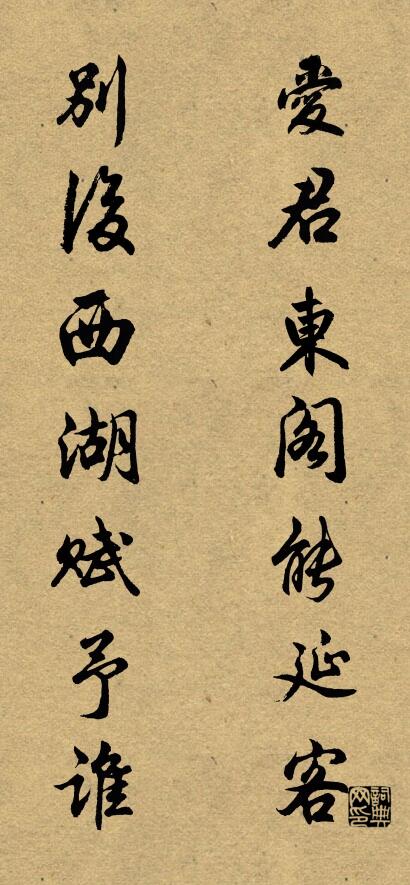 愛君東閣能延客
別後西湖賦予誰
詞典网印